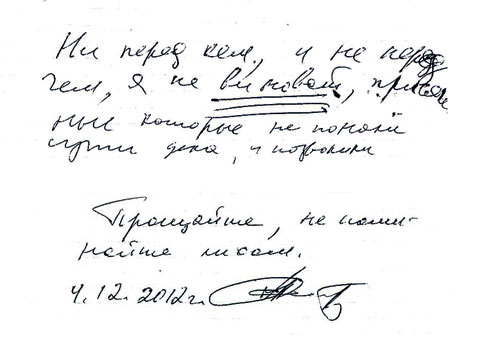 Ни перед кем, и не перед
чем, я не виноват,
ные которые не поняли
сути дела, и позволили
Прощайте, не поми-
найте лихом.
4.12.2012 г.